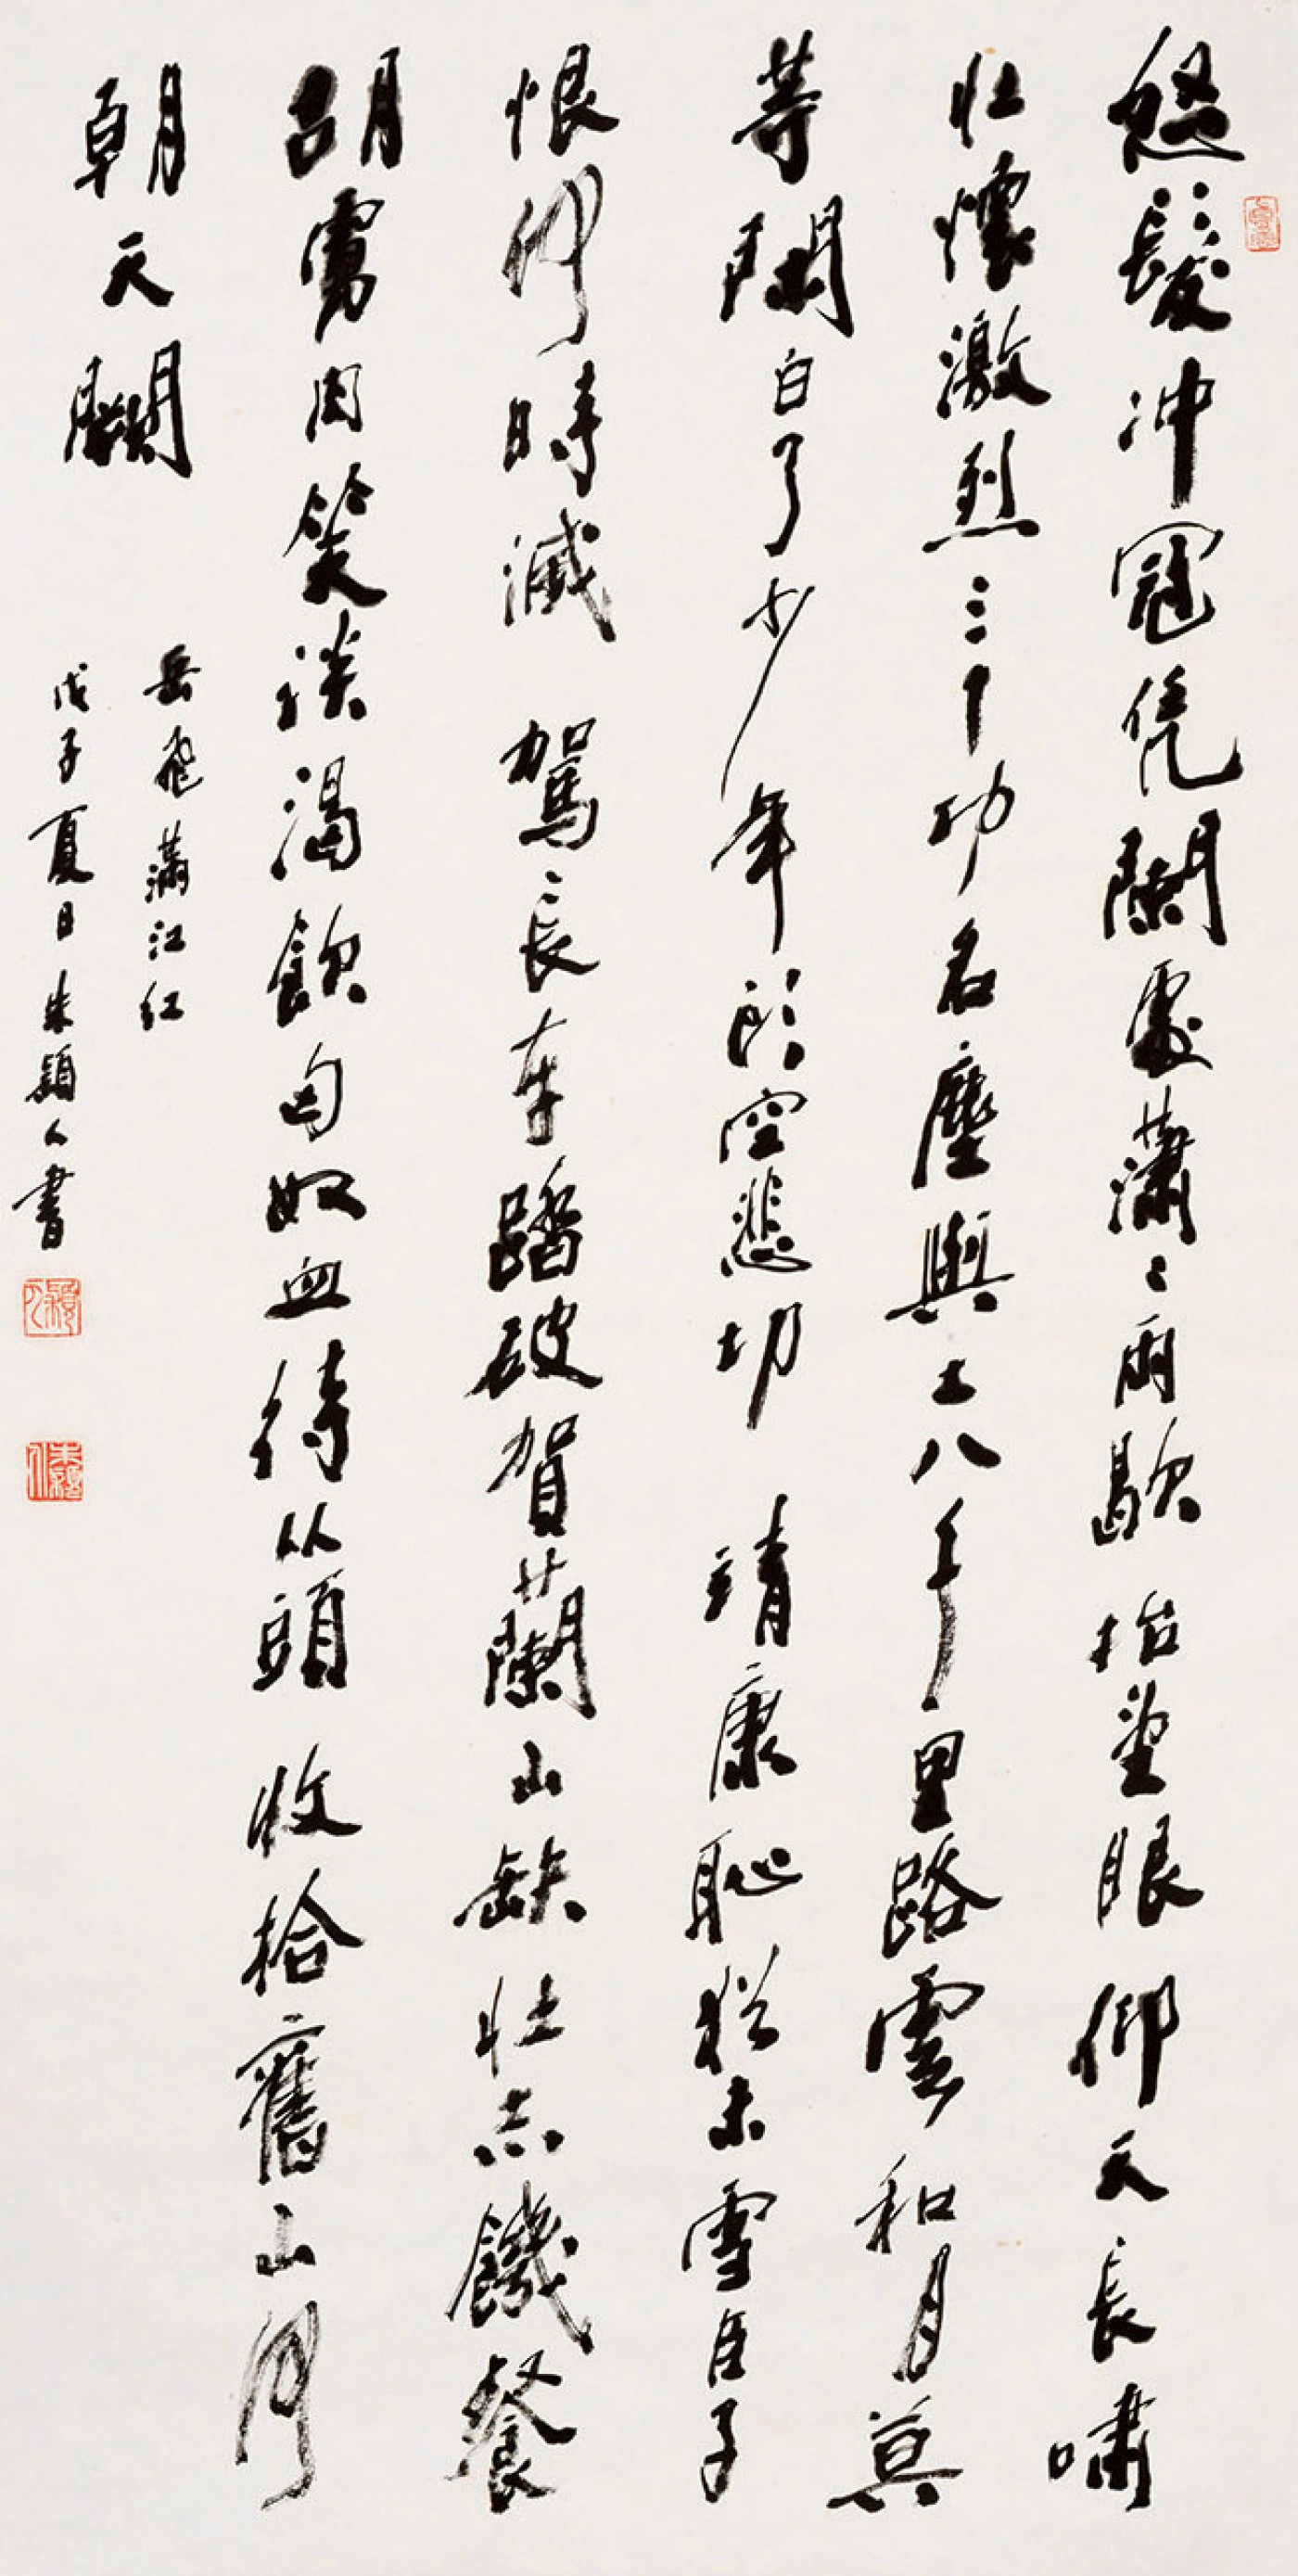 怒髮冲冠凭闌處瀟々雨歇抬望眼仰天長嘯
壮懷激烈三十功名塵與土八千里路雲和月莫
等閑白了少年頭空悲切靖康恥猶未雪臣子
恨何時滅駕長车踏破賀蘭山缺壮志饑餐
胡虜肉笑談渴飲匈奴血待从頭收拾舊山河
朝天闕
岳飛滿江红
戊子夏日朱穎人書